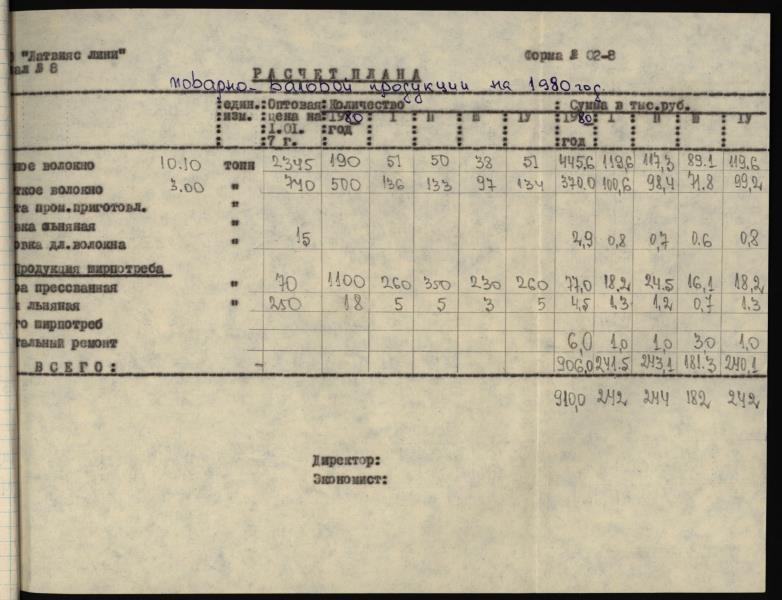 "Латвияс лини" Форма № 02-8
№ 8
РАСЧЕТ ПЛАНА
товарно-валовой продукции на 1980 год.
един. изм. Оптовая цена на 1.01. 7 г. Количество Сумма в тыс.руб.
1980 год I II III IУ 1980 год I II III IУ
ное волокно 10.10 тонн 2345 190 51 50 38 51 445,6 119,6 117,3 89.1 119,6
ткое волокно 3.00 " 740 500 136 133 97 134 370.0 100,6 98,4 71.8 99,2
та пром.приготовл. "
вка льняная "
овка дл.волокна " 15 2,9 0,8 0,7 0.6 0,8
Продукция ширпотреба
ра прессованная " 70 1100 260 350 230 260 77,0 18,2 24.5 16,1 18,2
льняная " 250 18 5 5 3 5 4,5 1,3 1,2 0,7 1.3
го ширпотреб
тальный ремонт 6,0 1,0 1,0 3,0 1,0
ВСЕГО: - 906,0 241.5 243,1 181.3 240,1
910,0 242 244 182 242
Директор:
Экономист: